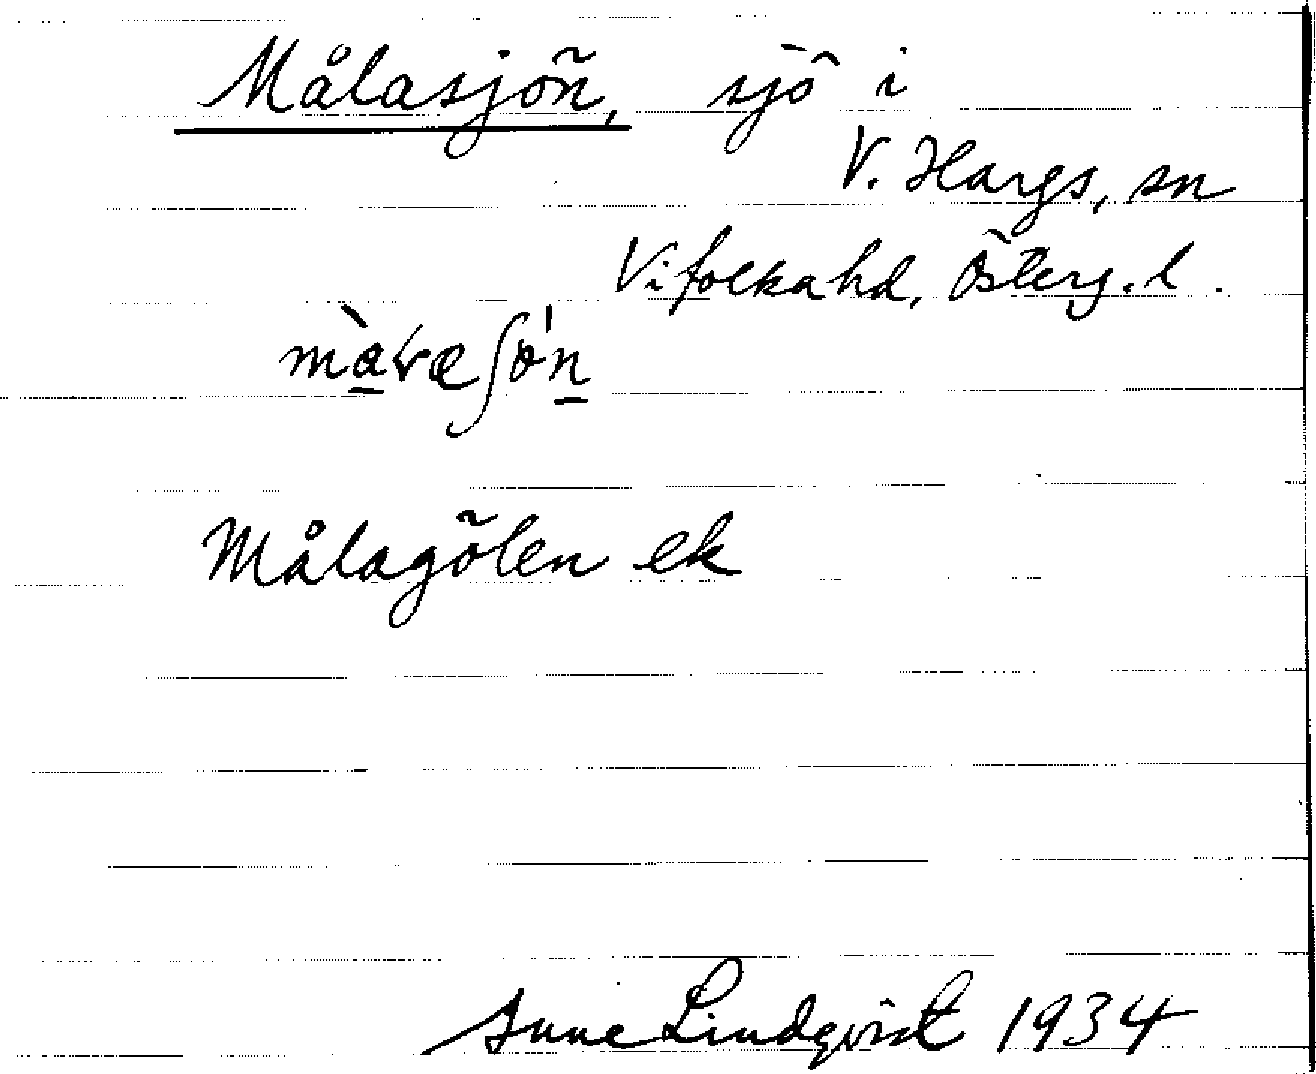 Målasjön, sjö i
V. Hargs, sn
Vifolka hd, Österg. l.
Målagölen ek
Sune Lindqvist 1934